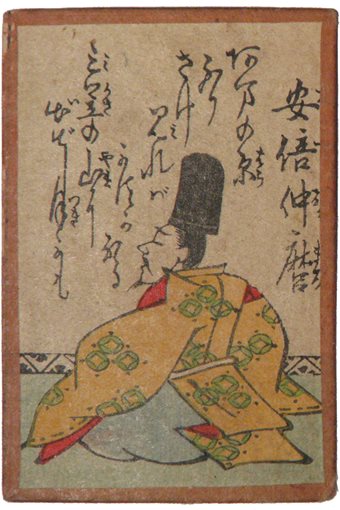 安倍仲麿
あまの原
ふり
さけ
見れバ
かすがなる
三笠の山に
いでし月かも